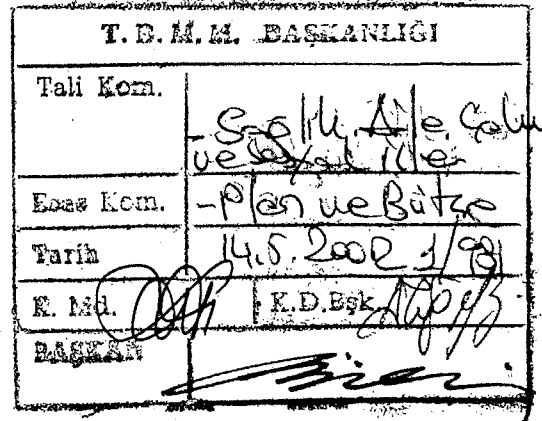 T. B. M. M. BAŞKANLIĞI
Tali Kom. - Sağlık, Aile, Çalı
ve Sosyal İşler
Esas Kom. - Plan ve Bütçe
Tarih 14.5.2002
K. Md. K.D.Bşk
BAŞKAN